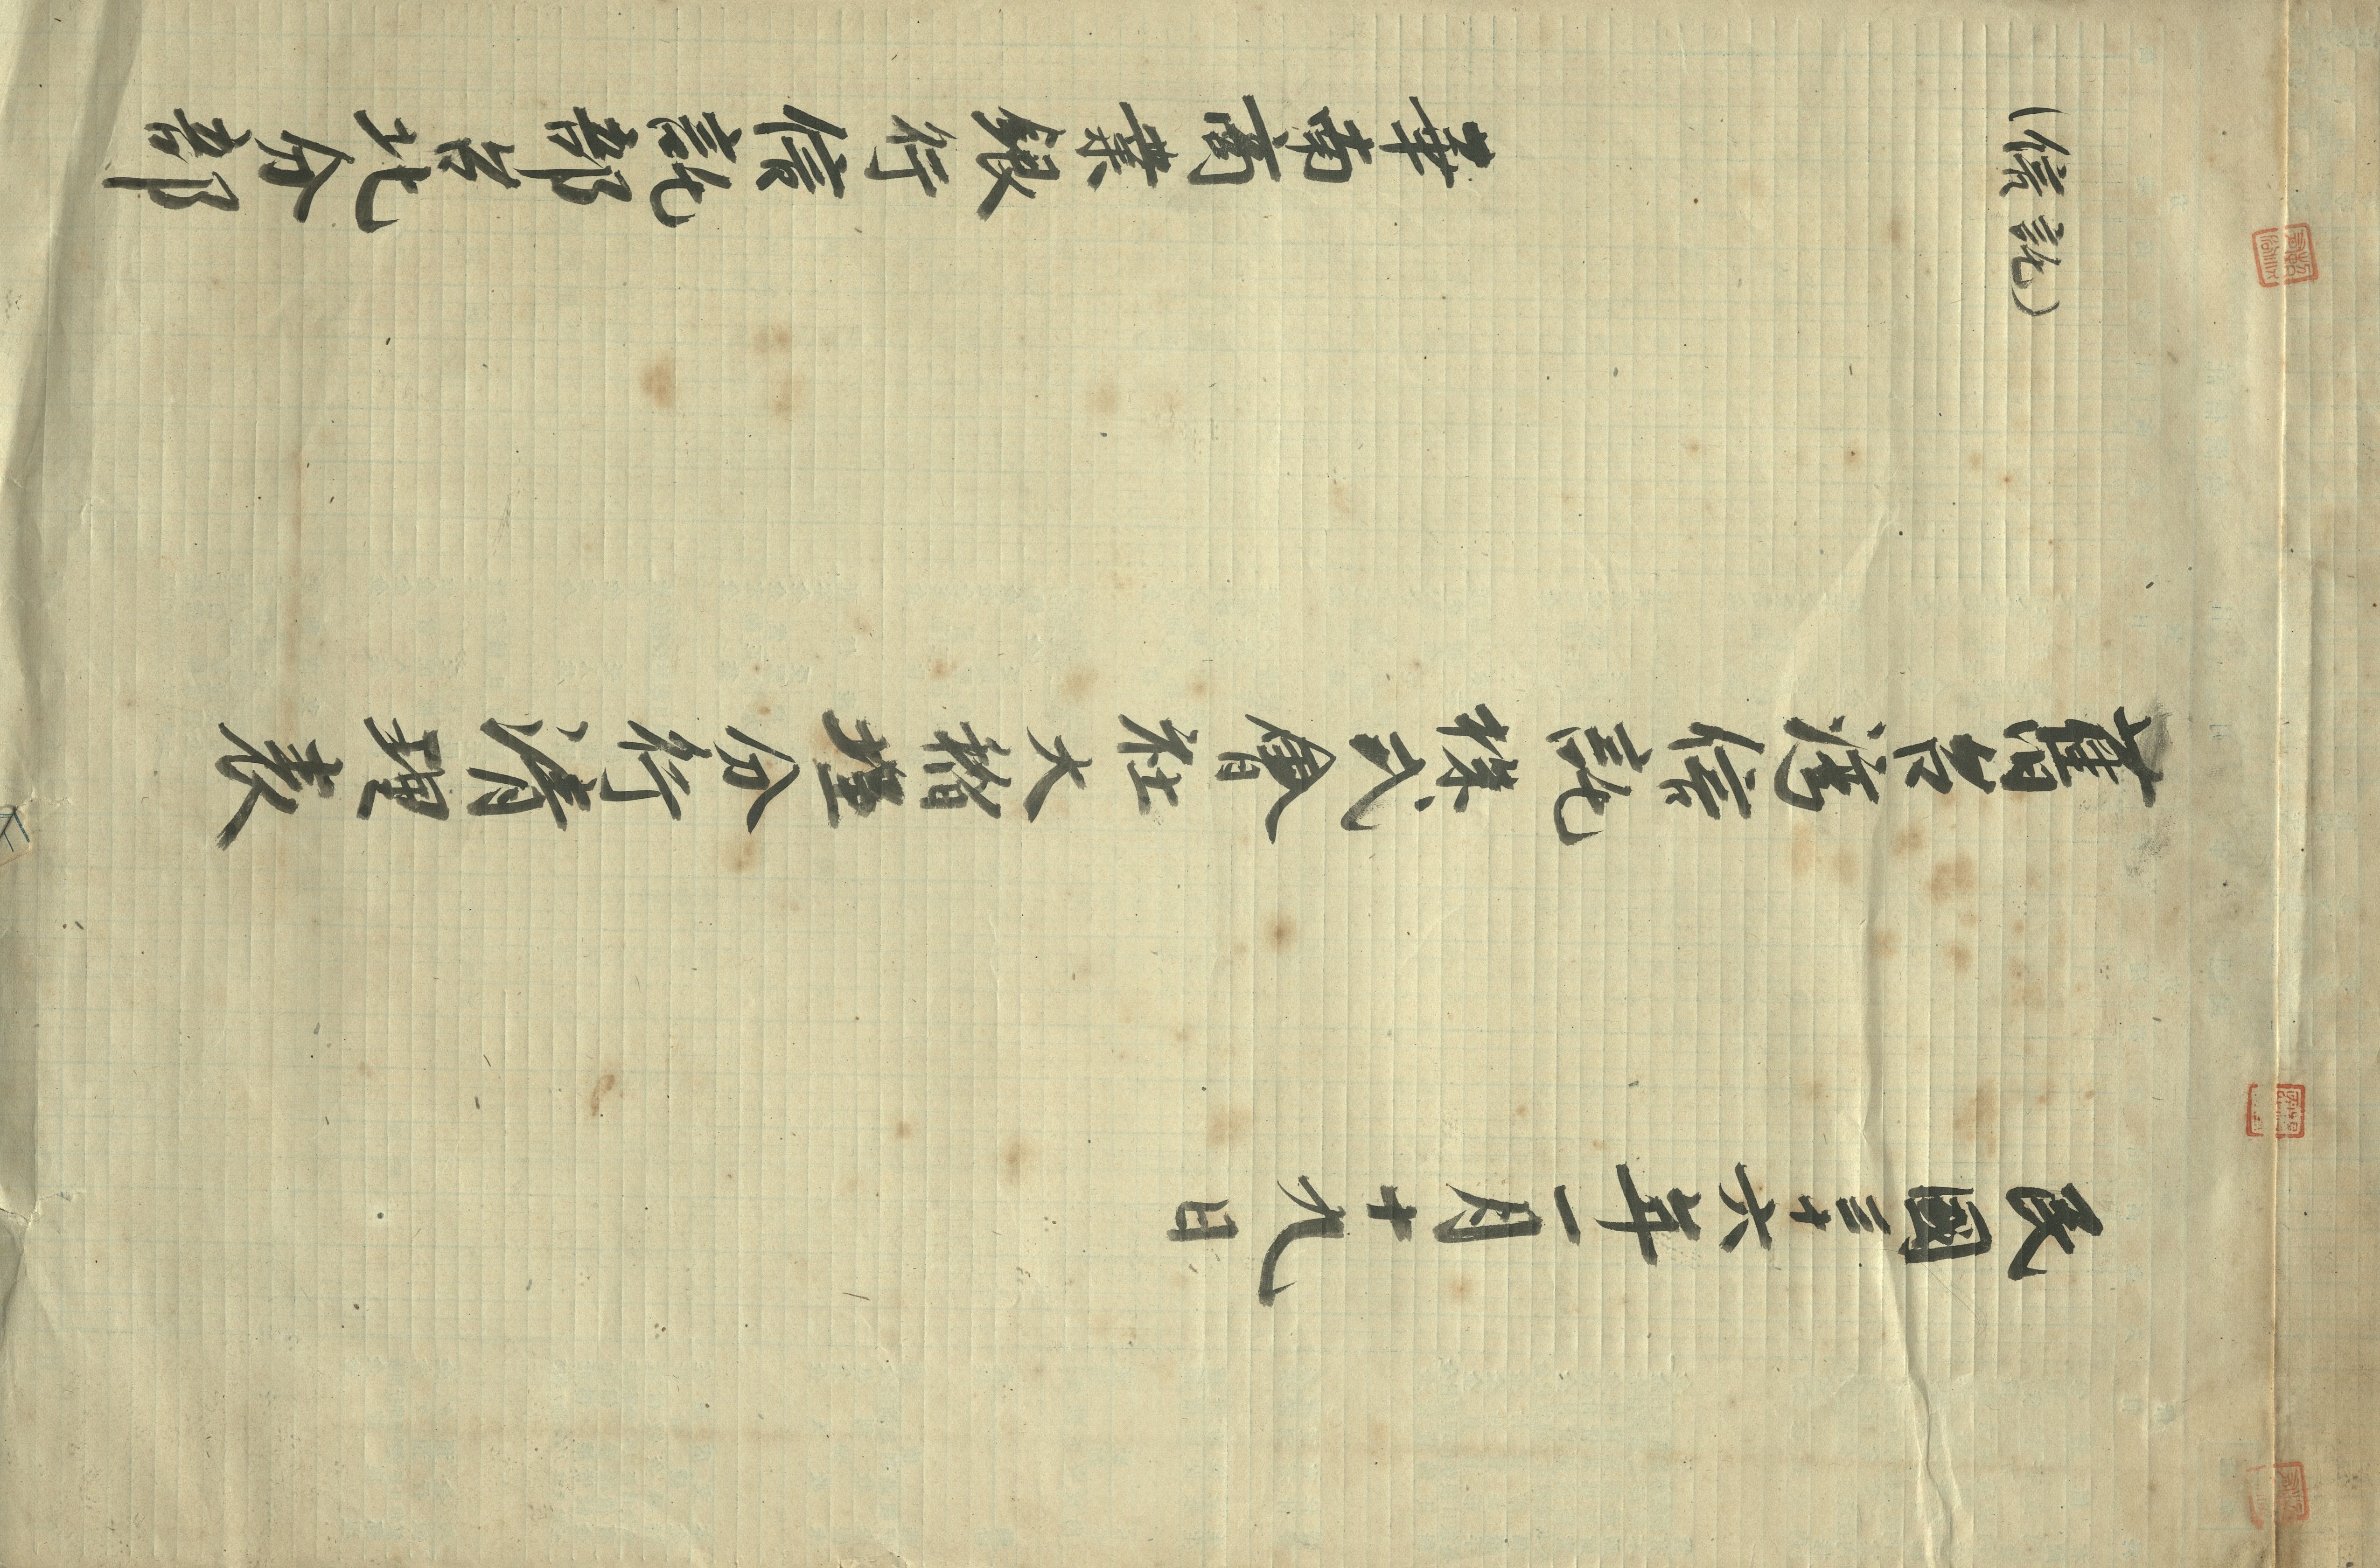 (信託)
民國三十六年一月十九日
舊台湾信託株式會社大稻埕分行清理表
華南商業銀行信託部台北分部